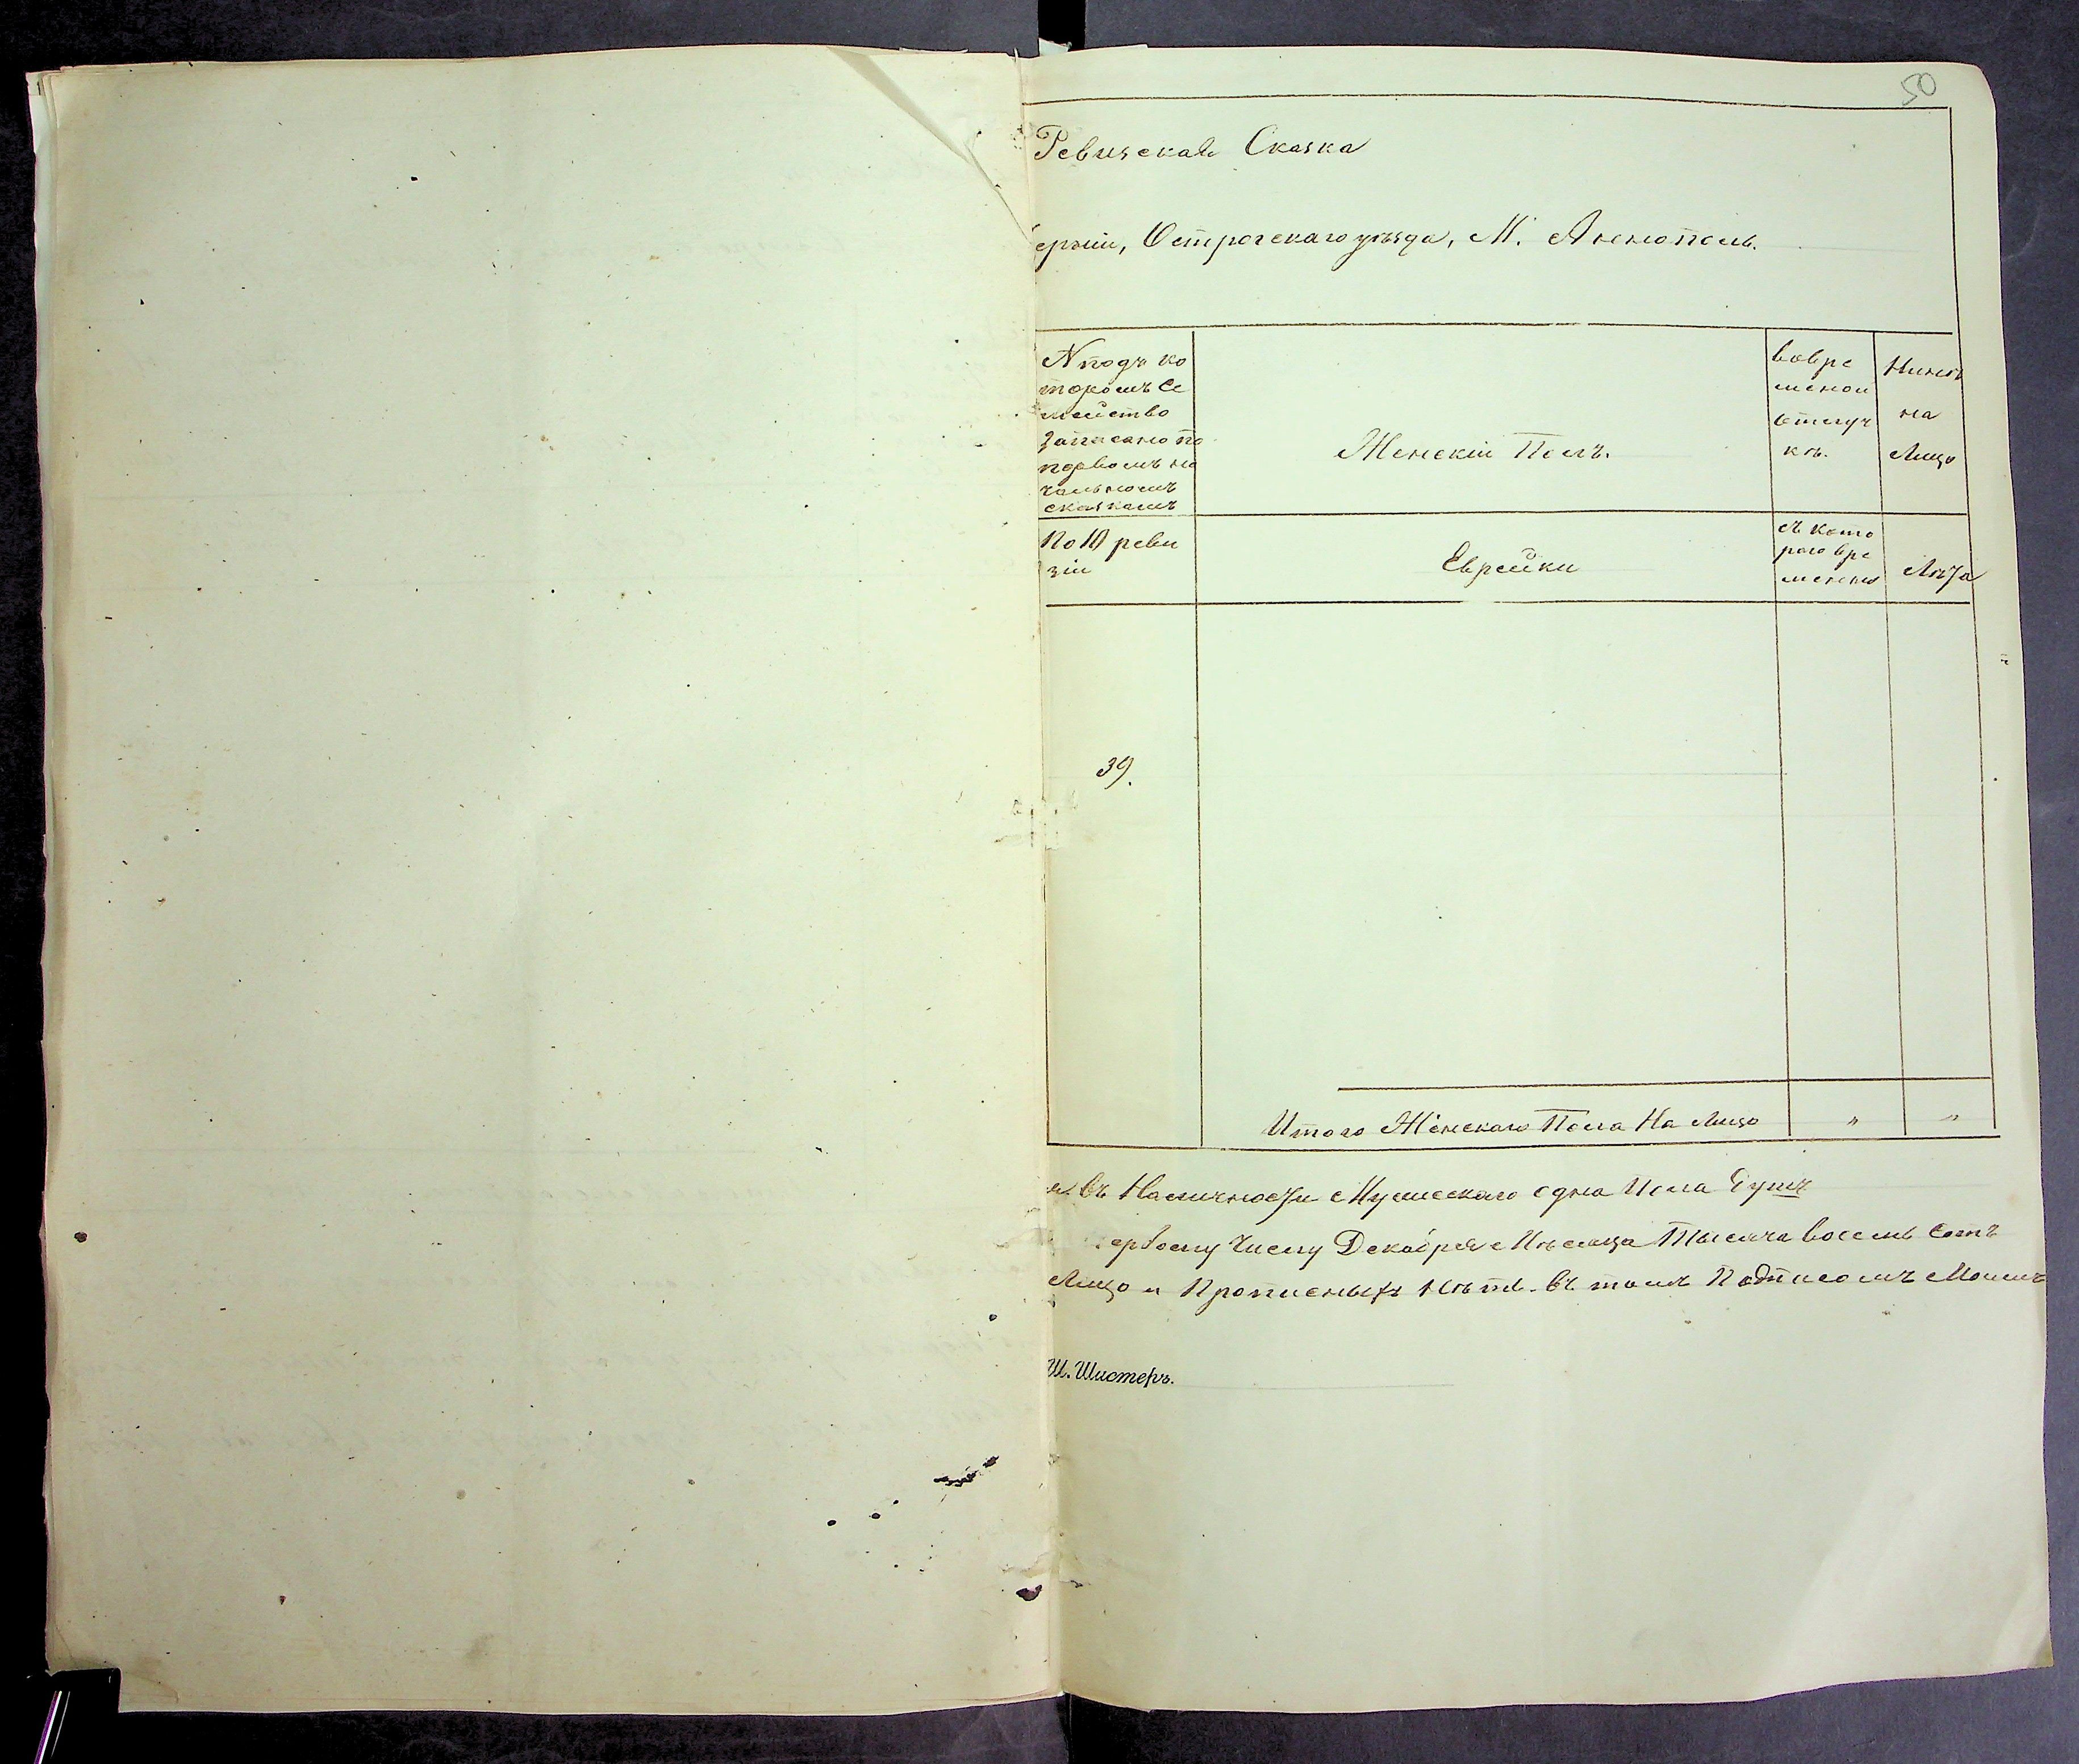 50
Ревизская Сказка
ерніи, Острогскаго уѣзда, М. Аннополь.
№ подъ ко
торомъ Се
мейство
записано по
первомъ на
чальномъ
сказкамъ
Женскій Полъ.
вовре
меной
отлуч
кѣ.
Нинѣ
на
Лицо
По 10 реви
зіи
Еврейки
съ кото
раго вре
мени
Лѣта
39.
Итого Женскаго Пола На Лицо " "
въ Наличности Мужескаго одна Пола Душъ
ервому Числу Декабря Мѣсяца Тысяча восемь Сотъ
Лицо и Прописныхъ Нѣтъ. Въ томъ Подписомъ Моимъ
Ш. Шистеръ.